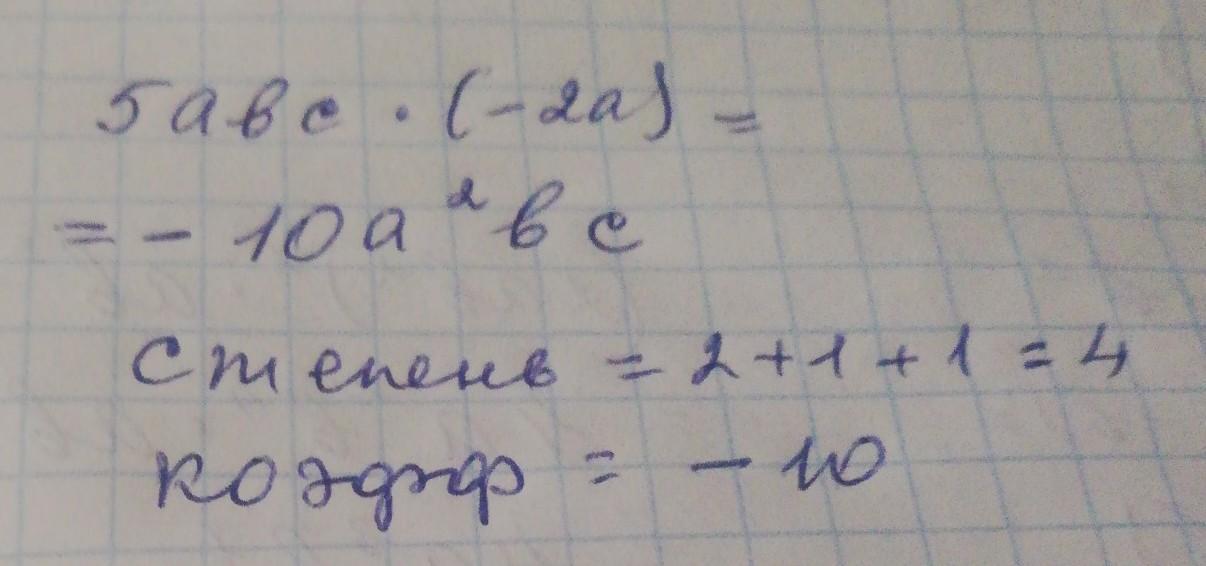 5авс · (-2а) =
= - 10а²вс
степень = 2 + 1 + 1 = 4
коэфф = - 10